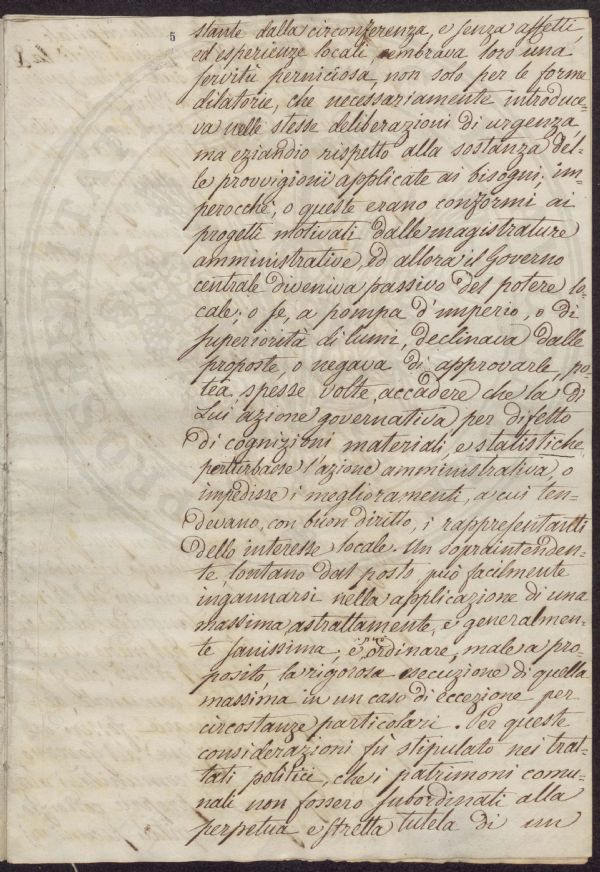 5
stante dalla circonferenza, e senza affetti,
ed esperienze locali, sembrava loro una
servitù perniciosa, non solo per le forme
dilatorie, che necessariamente introduce-
va nelle stesse deliberazioni di urgenza,
ma eziandio rispetto alla sostanza del-
le provvigioni applicate ai bisogni; im-
perocchè, o queste erano conformi ai
progetti motivati dalle magistrature
amministrative, ed allora il Governo
centrale diveniva passivo del potere lo-
cale; o se, a pompa d'imperio, o di
superiorità di lumi, declinava dalle
proposte, o negava di approvarle, po-
tea, spesse volte, accadere che la di
Lui azione governativa per difetto
di cognizioni materiali, e statistiche,
perturbasse l'azione amministrativa, o
impedisse i miglioramenti, a cui ten-
devano, con buon diritto, i rappresentanti
dello interesse locale. Un sopraintenden-
te, lontano dal posto, può facilmente
ingannarsi nella applicazione di una
massima, astrattamente, e generalmen-
te sanissima; e può ordinare, male a pro-
posito, la rigorosa esecuzione di quella
massima in un caso di eccezione per
circostanze particolari. Per queste
considerazioni fù stipulato nei trat-
tati politici, che i patrimonî comu-
nali non fossero subordinati alla
perpetua e stretta tutela di un